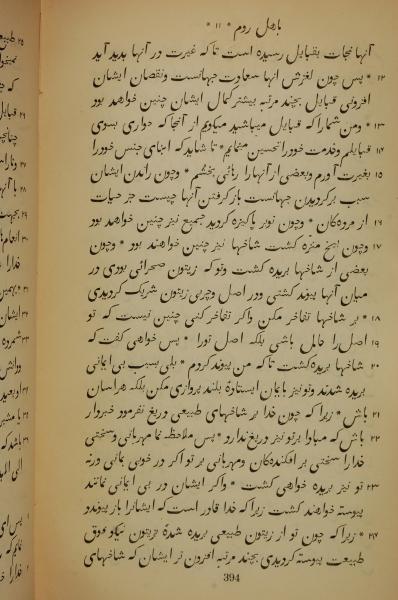 باهل روم * ۱۱ *
آنها نجات بقبایل رسیده است تا که غیرت در آنها بدید آید
۱۲ * پس چون لغزش آنها سعادت جهانست ونقصان ایشان
افزونی قبایل بچند مرتبه بیشتر کمال ایشان چنین خواهد بود
۱۳ * ومن شمارا که قبایل میباشید میگویم از آنجا که حواری بسوی
۱۴ قبایلم وخدمت خودرا تحسین مینمایم * تا شاید که ابنای جنس خودرا
۱۵ بغیرت آورم وبعضی از آنهارا رهائی بخشم * وچون راندن ایشان
سبب برگردیدن جهانست باز گرفتن آنها چیست جز حیات
۱۶ از مردهکان * وچون نوبر پاکیزه گردید جمیع نیز چنین خواهد بود
۱۷ وچون بیخ منزه گشت شاخها نیز چنین خواهند بود * وچون
بعضی از شاخها بریده گشت وتو که زیتون صحرائی بودی در
میان آنها پیوند گشتی ودر اصل وچربی زیتون شریک گردیدی
۱۸ * بر شاخها تفاخر مکن واگر تفاخر کنی چنین نیست که تو
۱۹ اصل را حامل باشی بلکه اصل تورا * پس خواهی گفت که
۲۰ شاخها بریده گشت تا که من پیوند گردم * بلی بسبب بی ایمانی
بریده شدند وتو نیز بایمان ایستادهٔ بلند پروازی مکن بلکه هراسان
۲۱ باش * زیرا که چون خدا بر شاخهای طبیعی دریغ نفرمود خبردار
۲۲ باش که مبادا بر تو نیز دریغ ندارد * پس ملاحظه نما مهربانی وسختی
خدارا سختی بر افکندهکان ومهربانی بر تو اگر در خوبی بمانی ورنه
۲۳ تو نیز بریده خواهی گشت * واگر ایشان در بی ایمانی نمانند
پیوسته خواهند گشت زیرا که خدا قادر است که ایشانرا باز پیوندد
۲۴ * زیرا که چون تو از زیتون طبیعی بریده شدهٔ بزیتون نیکو بفوق
طبیعت پیوسته گردیدی بچند مرتبه افزون تر ایشان که شاخهای
394